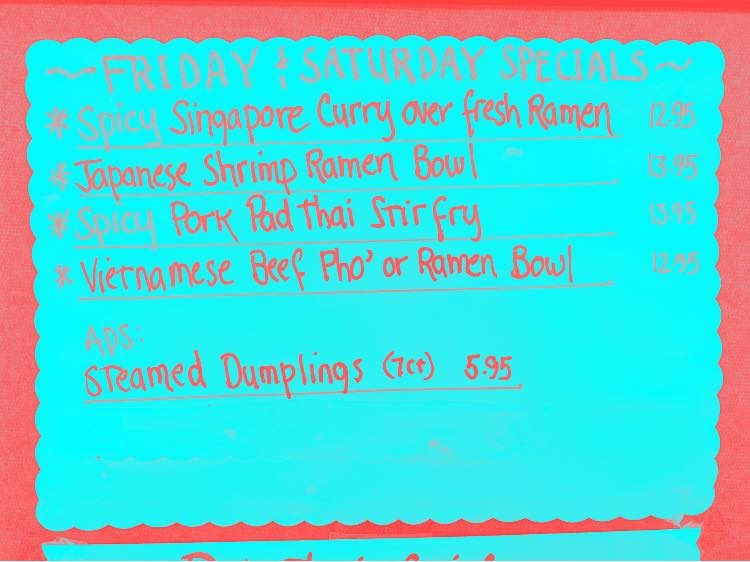 ~FRIDAY & SATURDAY SPECIALS~
* Spicy Singapore Curry over fresh Ramen 12.95
* Japanese Shrimp Ramen Bowl 13.95
* Spicy Pork Pad Thai Stir fry 13.95
* Vietnamese Beef Pho' or Ramen Bowl 12.95
Aps:
Steamed Dumplings (7ct) 5.95